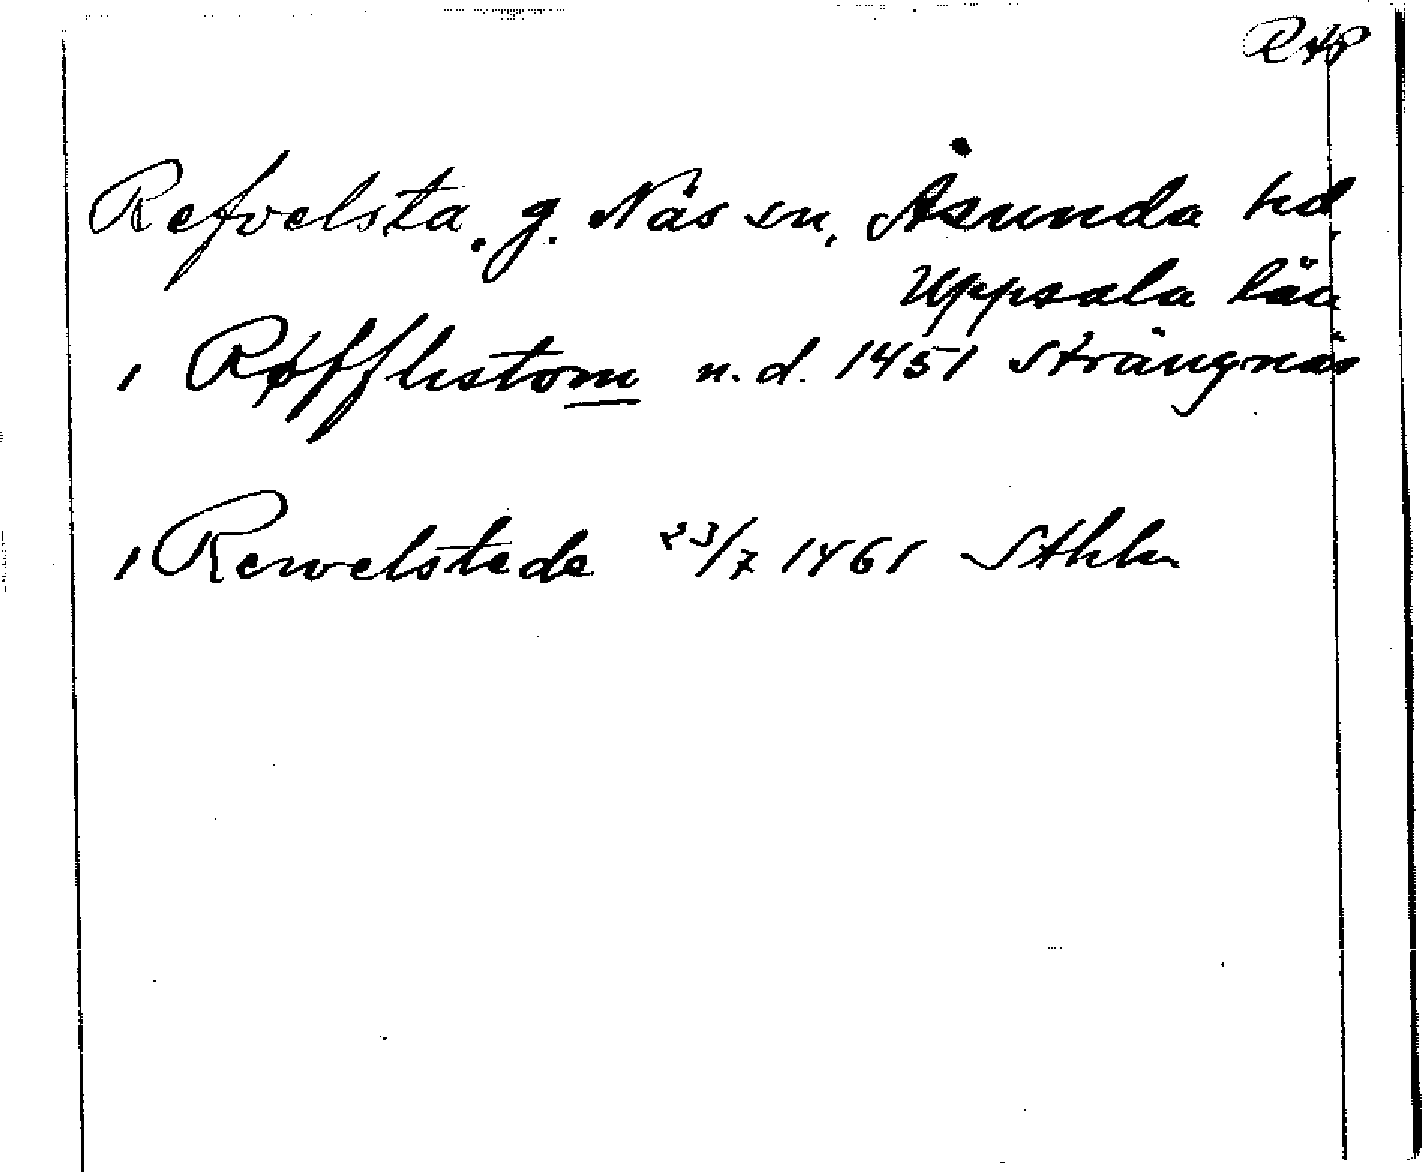 RAP
Refvelsta. g. Näs sn, Åsunda hd,
Uppsala län
, Røfflestom n. d. 1451 Strängnäs
, Rewelstede 23/7 1461 Sthlm